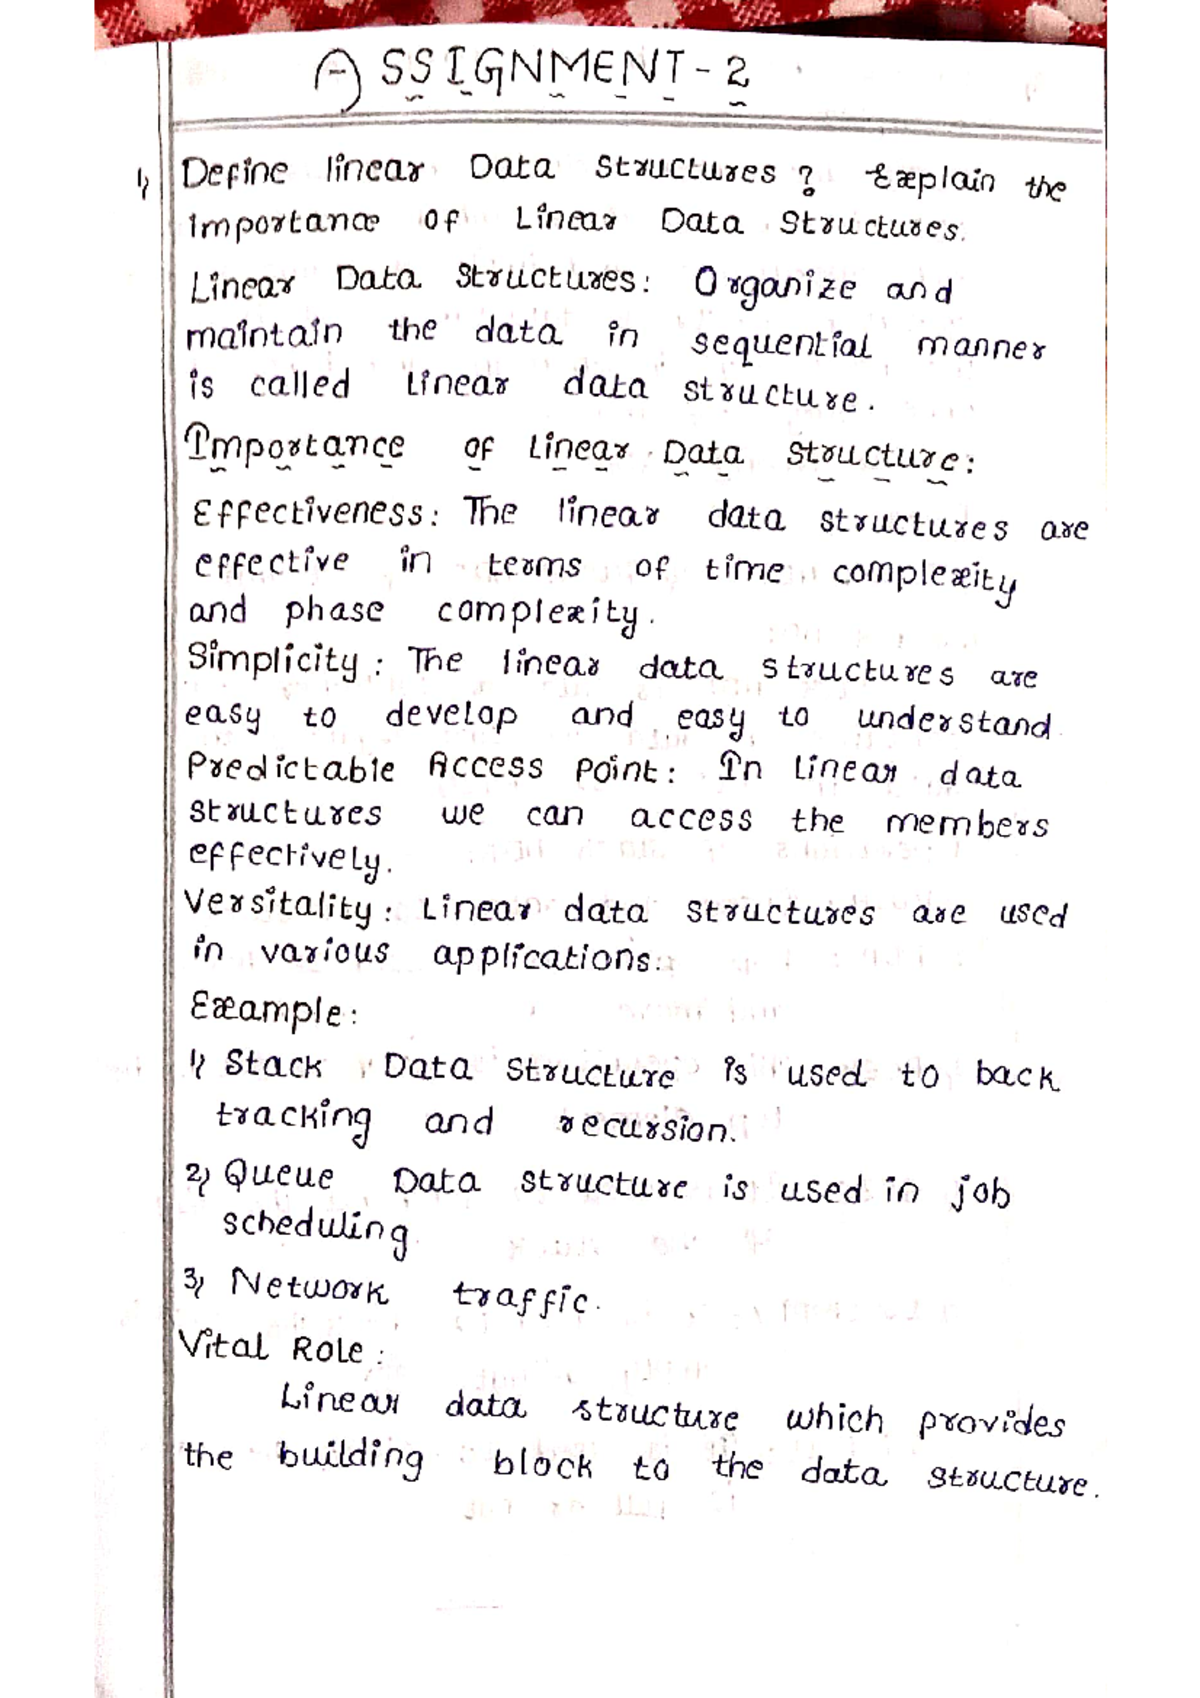 ASSIGNMENT-2
1) Define linear Data Structures? Explain the
importance of Linear Data Structures.
Linear Data Structures: Organize and
maintain the data in sequential manner
is called linear data structure.
Importance of Linear Data Structure:
Effectiveness: The linear data structures are
effective in terms of time complexity
and phase complexity.
Simplicity: The linear data structures are
easy to develop and easy to understand
Predictable Access Point: In linear data
structures we can access the members
effectively.
Versitality: Linear data structures are used
in various applications.
Example:
1) Stack Data Structure is used to back
tracking and recursion.
2) Queue Data structure is used in job
scheduling
3) Network traffic.
Vital Role:
Linear data structure which provides
the building block to the data structure.